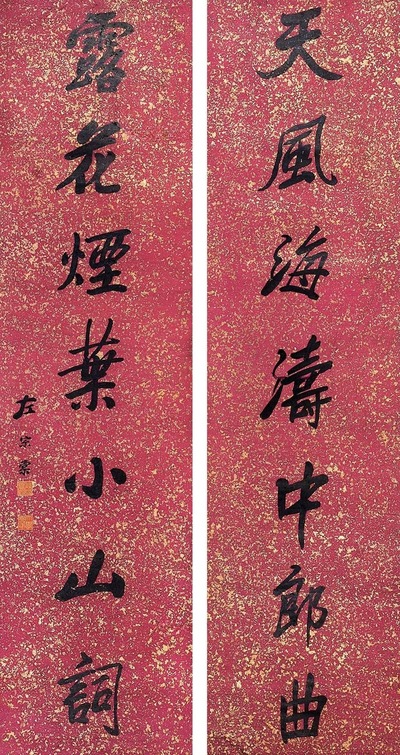 天風海濤中郎曲
露花煙葉小山詞
左宗棠